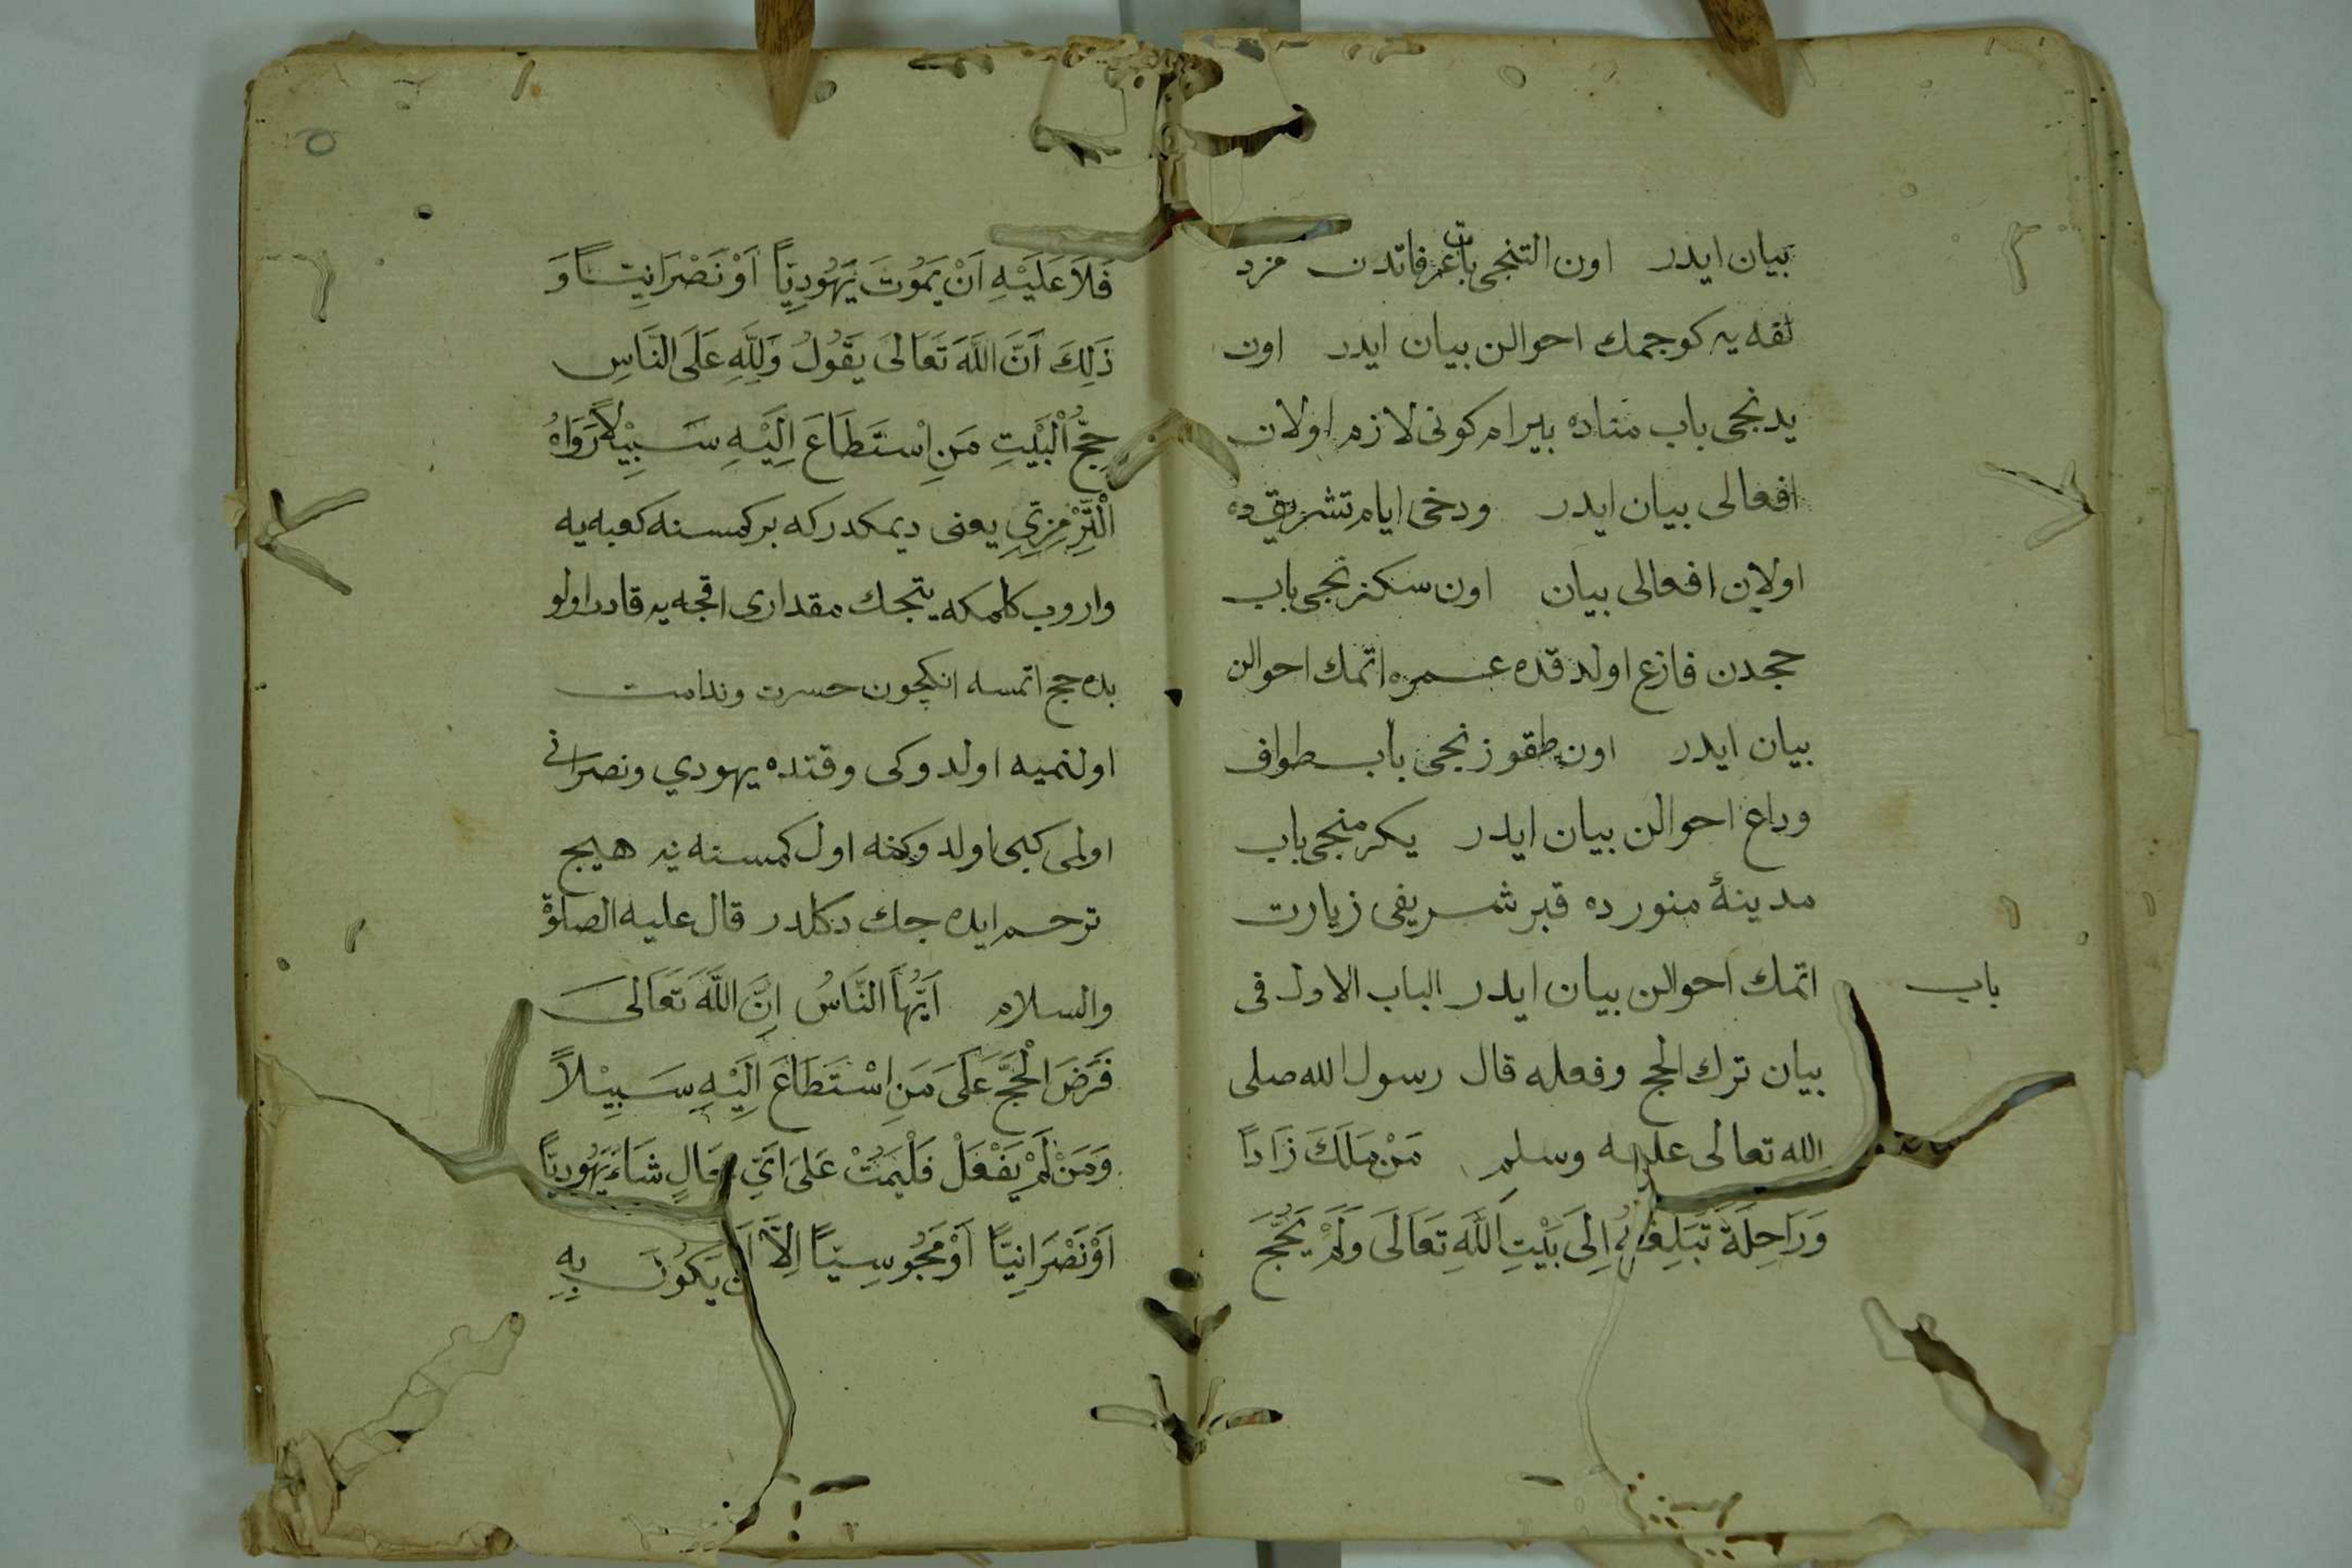 بيان ايدر اون التنجى باب عرفاتدن مزد
لفه يه كوجمك احوالن بيان ايدر اون
يدنجى باب مناده بيرام كونى لازم اولان
افعالى بيان ايدر ودخى ايام تشريقده
اولان افعالى بيان اون سكزنجى باب
حجدن فارغ اولدقده عمره اتمك احوالن
بيان ايدر اون طقوزنجى باب طواف
وداع احوالن بيان ايدر يكرمنجى باب
مدينۀ منورده قبر شريفى زيارت
اتمك احوالن بيان ايدر الباب الاول فى
باب
بيان ترك الحج وفعله قال رسول الله صلى
الله تعالى عليه وسلم مَنْ مَلَكَ زَادًا
وَرَاحِلَةً تَبَلِغُهُ اِلَى بَيْتِ اللَّهِ تَعَالَى وَلَمْ يَحُجَّ
فَلَا عَلَيْهِ اَنْ يَمُوتَ يَهُودِيًّا اَوْ نَصْرَانِيًّا وَ
ذَلِكَ اَنَّ اللَّهَ تَعَالَى يَقُولُ وَلِلَّهِ عَلَى النَّاسِ
حِجُّ الْبَيْتِ مَنِ اسْتَطَاعَ اِلَيْهِ سَبِيْلًا رَوَاهُ
الْتِّرْمِزِىِّ يعنى ديمكدر كه بر كمسنه كعبه يه
واروب كلمكه يتجك مقدارى اقچه يه قادر اولو
بده حج اتمسه انكچون حسرت وندامت
اولنميه اولدوكى وقتده يهودي ونصرانى
اولمى كبى اولدوكنه اول كمسنه يه هيچ
ترحم ايده جك دكلدر قال عليه الصلوة
والسلام اَيُّهَا النَّاسُ اِنَّ اللَّهَ تَعَالَى
فَرَضَ الْحَجَّ عَلَى مَنِ اسْتَطَاعَ اِلَيْهِ سَبِيْلًا
وَمَنْ لَمْ يَفْعَلْ فَلْيَمُتْ عَلَى اَىِّ حَالٍ شَاءَ يَهُودِيًّا
اَوْ نَصْرَانِيًّا اَوْ مَجُوسِيًّا اِلَّا اَنْ يَكُونَ بِهِ